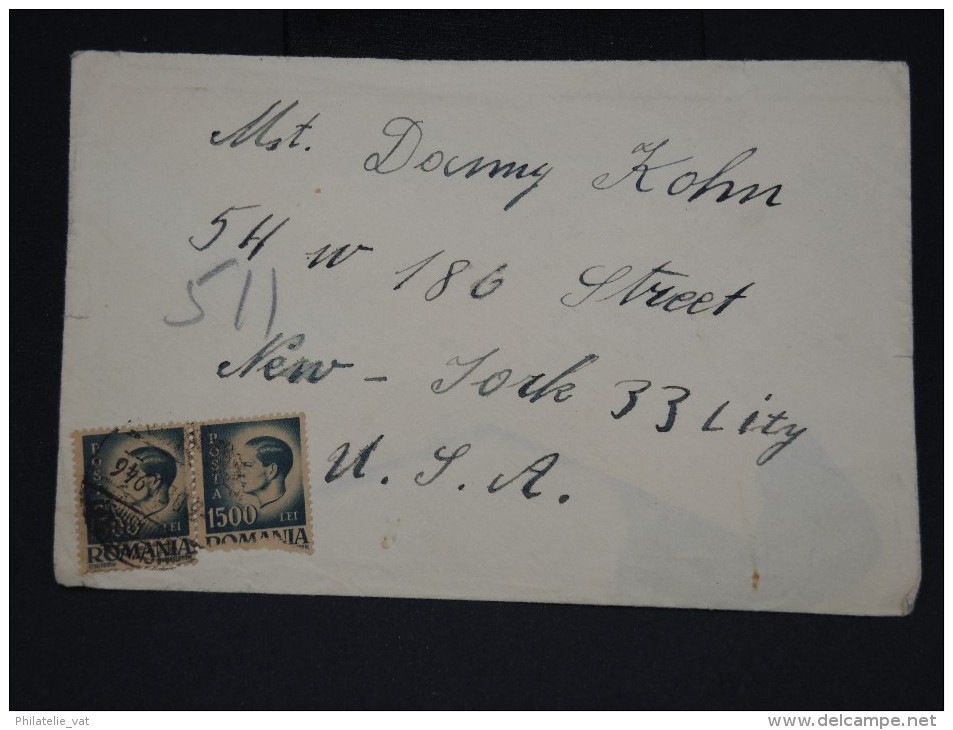 Mst. Danny Kohn
54 W 186 Street
511
New - York 33 City
U. S. A.
POSTA
LEI
ROMANIA
946
POSTA
1500 LEI
ROMANIA
Philatelie_vat
http://www.delcampe.net